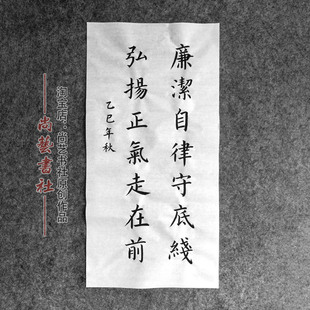 廉潔自律守底綫
弘揚正氣走在前
乙巳年秋
淘宝店：尚艺书社原创作品
尚藝書社